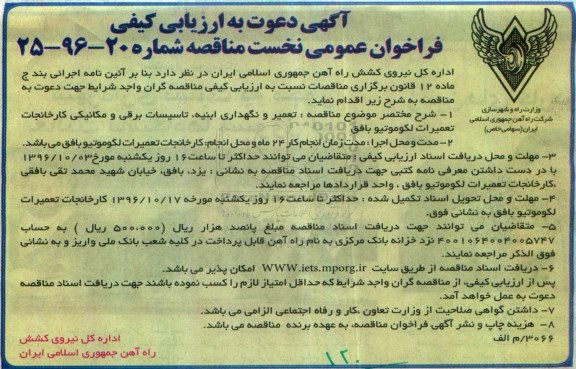 آگهی دعوت به ارزیابی کیفی
فراخوان عمومی نخست مناقصه شماره ۲۰-۹۶-۲۵
وزارت راه و شهرسازی
شرکت راه آهن جمهوری اسلامی
ایران (سهامی خاص)
اداره کل نیروی کشش راه آهن جمهوری اسلامی ایران در نظر دارد بنا بر آئین نامه اجرائی بند ج
ماده ۱۲ قانون برگزاری مناقصات نسبت به ارزیابی کیفی مناقصه گران واجد شرایط جهت دعوت به
مناقصه به شرح زیر اقدام نماید.
۱- شرح مختصر موضوع مناقصه : تعمیر و نگهداری ابنیه، تاسیسات برقی و مکانیکی کارخانجات
تعمیرات لکوموتیو بافق
۲- مدت و محل اجرا : مدت زمان انجام کار ۲۴ ماه و محل انجام: کارخانجات تعمیرات لکوموتیو بافق می باشد.
۳- مهلت و محل دریافت اسناد ارزیابی کیفی : متقاضیان می توانند حداکثر تا ساعت ۱۶ روز یکشنبه مورخ ۱۳۹۶/۱۰/۰۳
با در دست داشتن معرفی نامه کتبی جهت دریافت اسناد مناقصه به نشانی : یزد، بافق، خیابان شهید محمد تقی بافقی
،کارخانجات تعمیرات لکوموتیو بافق ، واحد قراردادها مراجعه نمایند.
۴- مهلت و محل تحویل اسناد تکمیل شده : حداکثر تا ساعت ۱۶ روز یکشنبه مورخه ۱۳۹۶/۱۰/۱۷ کارخانجات تعمیرات
لکوموتیو بافق به نشانی فوق.
۵- متقاضیان می توانند جهت دریافت اسناد مناقصه مبلغ پانصد هزار ریال (۵۰۰،۰۰۰ ریال ) به حساب
۴۰۰۱۰۶۴۰۰۴۰۰۵۷۴۷ نزد خزانه بانک مرکزی به نام راه آهن قابل پرداخت در کلیه شعب بانک ملی واریز و به نشانی
فوق الذکر مراجعه نمایند.
۶- دریافت اسناد مناقصه از طریق سایت WWW.iets.mporg.ir امکان پذیر می باشد.
پس از ارزیابی کیفی، از مناقصه گران واجد شرایط که حداقل امتیاز لازم را کسب نموده باشند جهت دریافت اسناد مناقصه
دعوت به عمل خواهد آمد.
۷- داشتن گواهی صلاحیت از وزارت تعاون ،کار و رفاه اجتماعی الزامی می باشد.
۸- هزینه چاپ و نشر آگهی فراخوان مناقصه، به عهده برنده مناقصه می باشد.
۳۰۶۶/م الف
اداره کل نیروی کشش
راه آهن جمهوری اسلامی ایران
۱۲۰